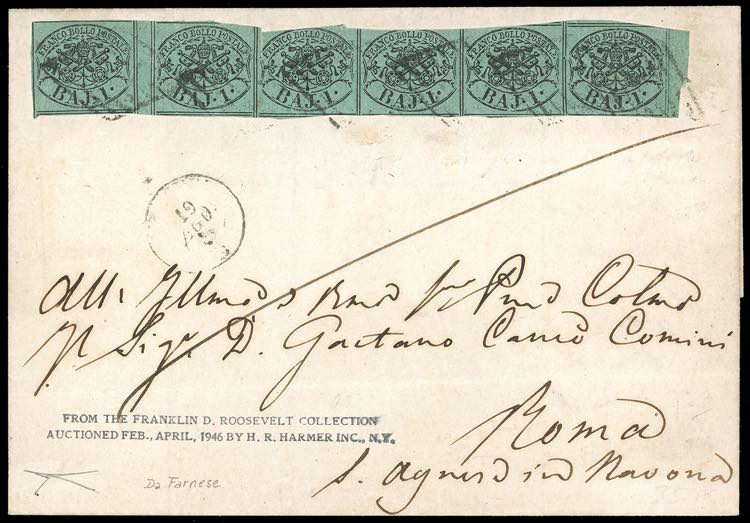 FRANCO BOLLO POSTALE BAJ. 1. FRANCO BOLLO POSTALE BAJ. 1. FRANCO BOLLO POSTALE BAJ. 1. FRANCO BOLLO POSTALE BAJ. 1. FRANCO BOLLO POSTALE BAJ. 1. FRANCO BOLLO POSTALE BAJ. 1.
19
AGO
All' Illmo
Sigr. D. Gaetano Comini
FROM THE FRANKLIN D. ROOSEVELT COLLECTION
AUCTIONED FEB., APRIL, 1946 BY H. R. HARMER INC., N.Y.
Roma
S. Agnese in Navona
Da Farnese